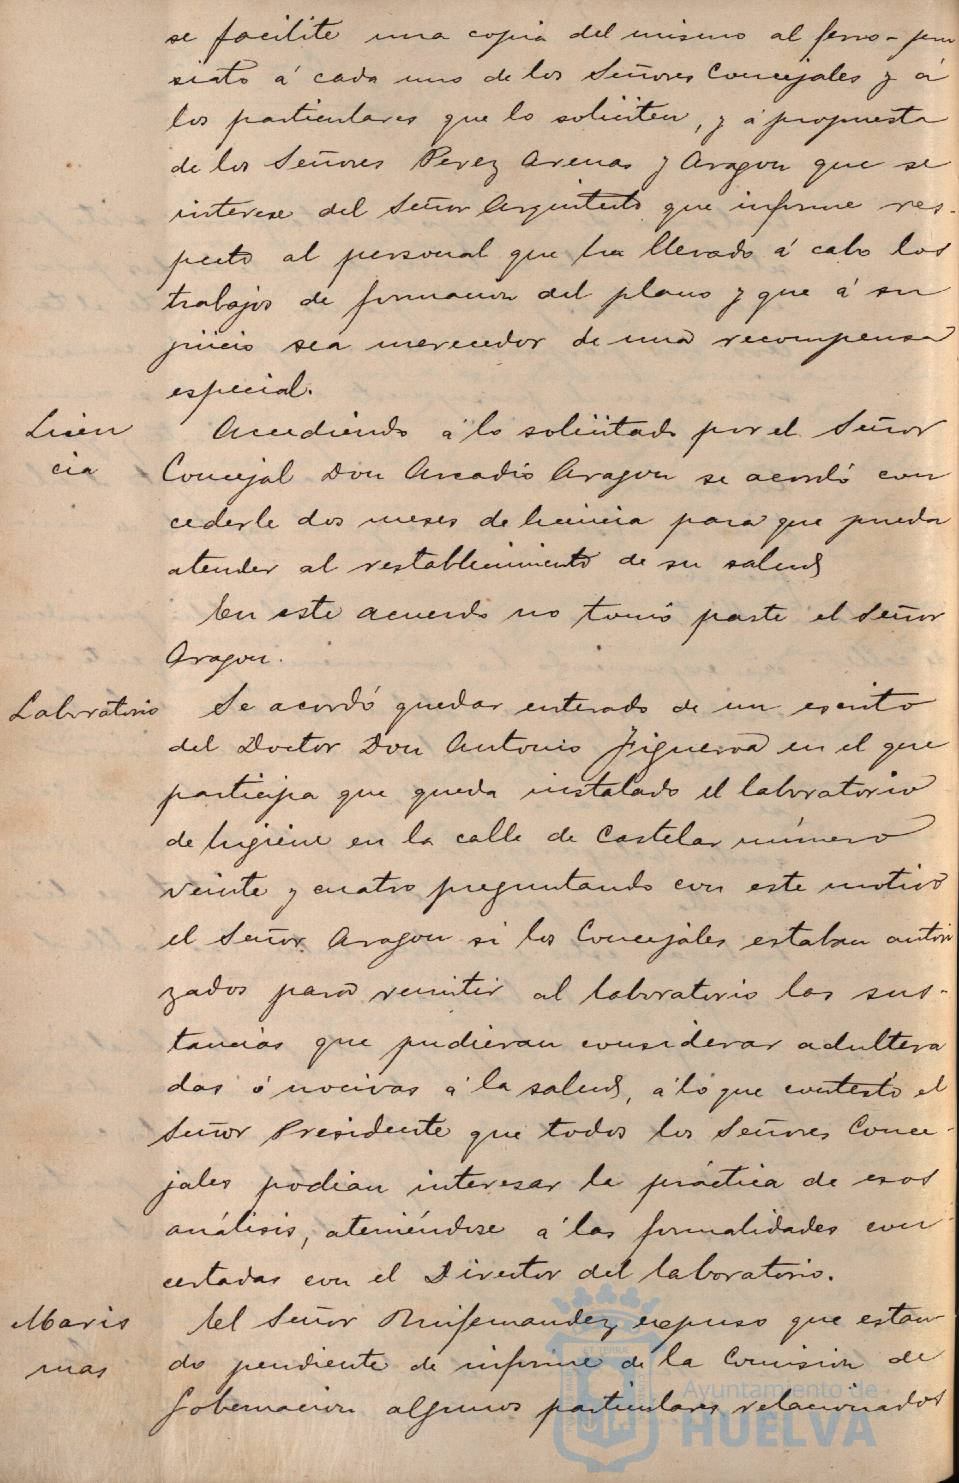 se facilite una copia del mismo al ferro-pru
siato á cada uno de los Señores Concejales y á
los particulares que lo soliciten, y á propuesta
de los Señores Perez Arenas y Aragon que se
interese del Señor Arquitecto que informe res-
pecto al personal que ha llevado á cabo los
trabajos de formacion del plano y que á su
juicio sea merecedor de una recompensa
especial.
Licen
cia
Accediendo á lo solicitado por el Señor
Concejal Don Arcadio Aragon se acordó con
cederle dos meses de licencia para que pueda
atender al restablecimiento de su salud
En este acuerdo no tomó parte el Señor
Aragon.
Laboratorio
Se acordó quedar enterado de un escrito
del Doctor Don Antonio Figueroa en el que
participa que queda instalado el laboratorio
de higiene en la calle de Castelar número
veinte y cuatro preguntando con este motivo
el Señor Aragon si los Concejales estaban autori
zados para remitir al laboratorio las sus-
tancias que pudieran considerar adultera
das ó nocivas á la salud, á lo que contestó el
Señor Presidente que todos los Señores Conce-
jales podian interesar la práctica de esos
análisis, ateniéndose á las formalidades con-
certadas con el Director del laboratorio.
Maris
mas
El Señor Ruifernandez expuso que estan
do pendiente de informe de la Comision de
Gobernacion algunos particulares relacionados
Ayuntamiento de
HUELVA